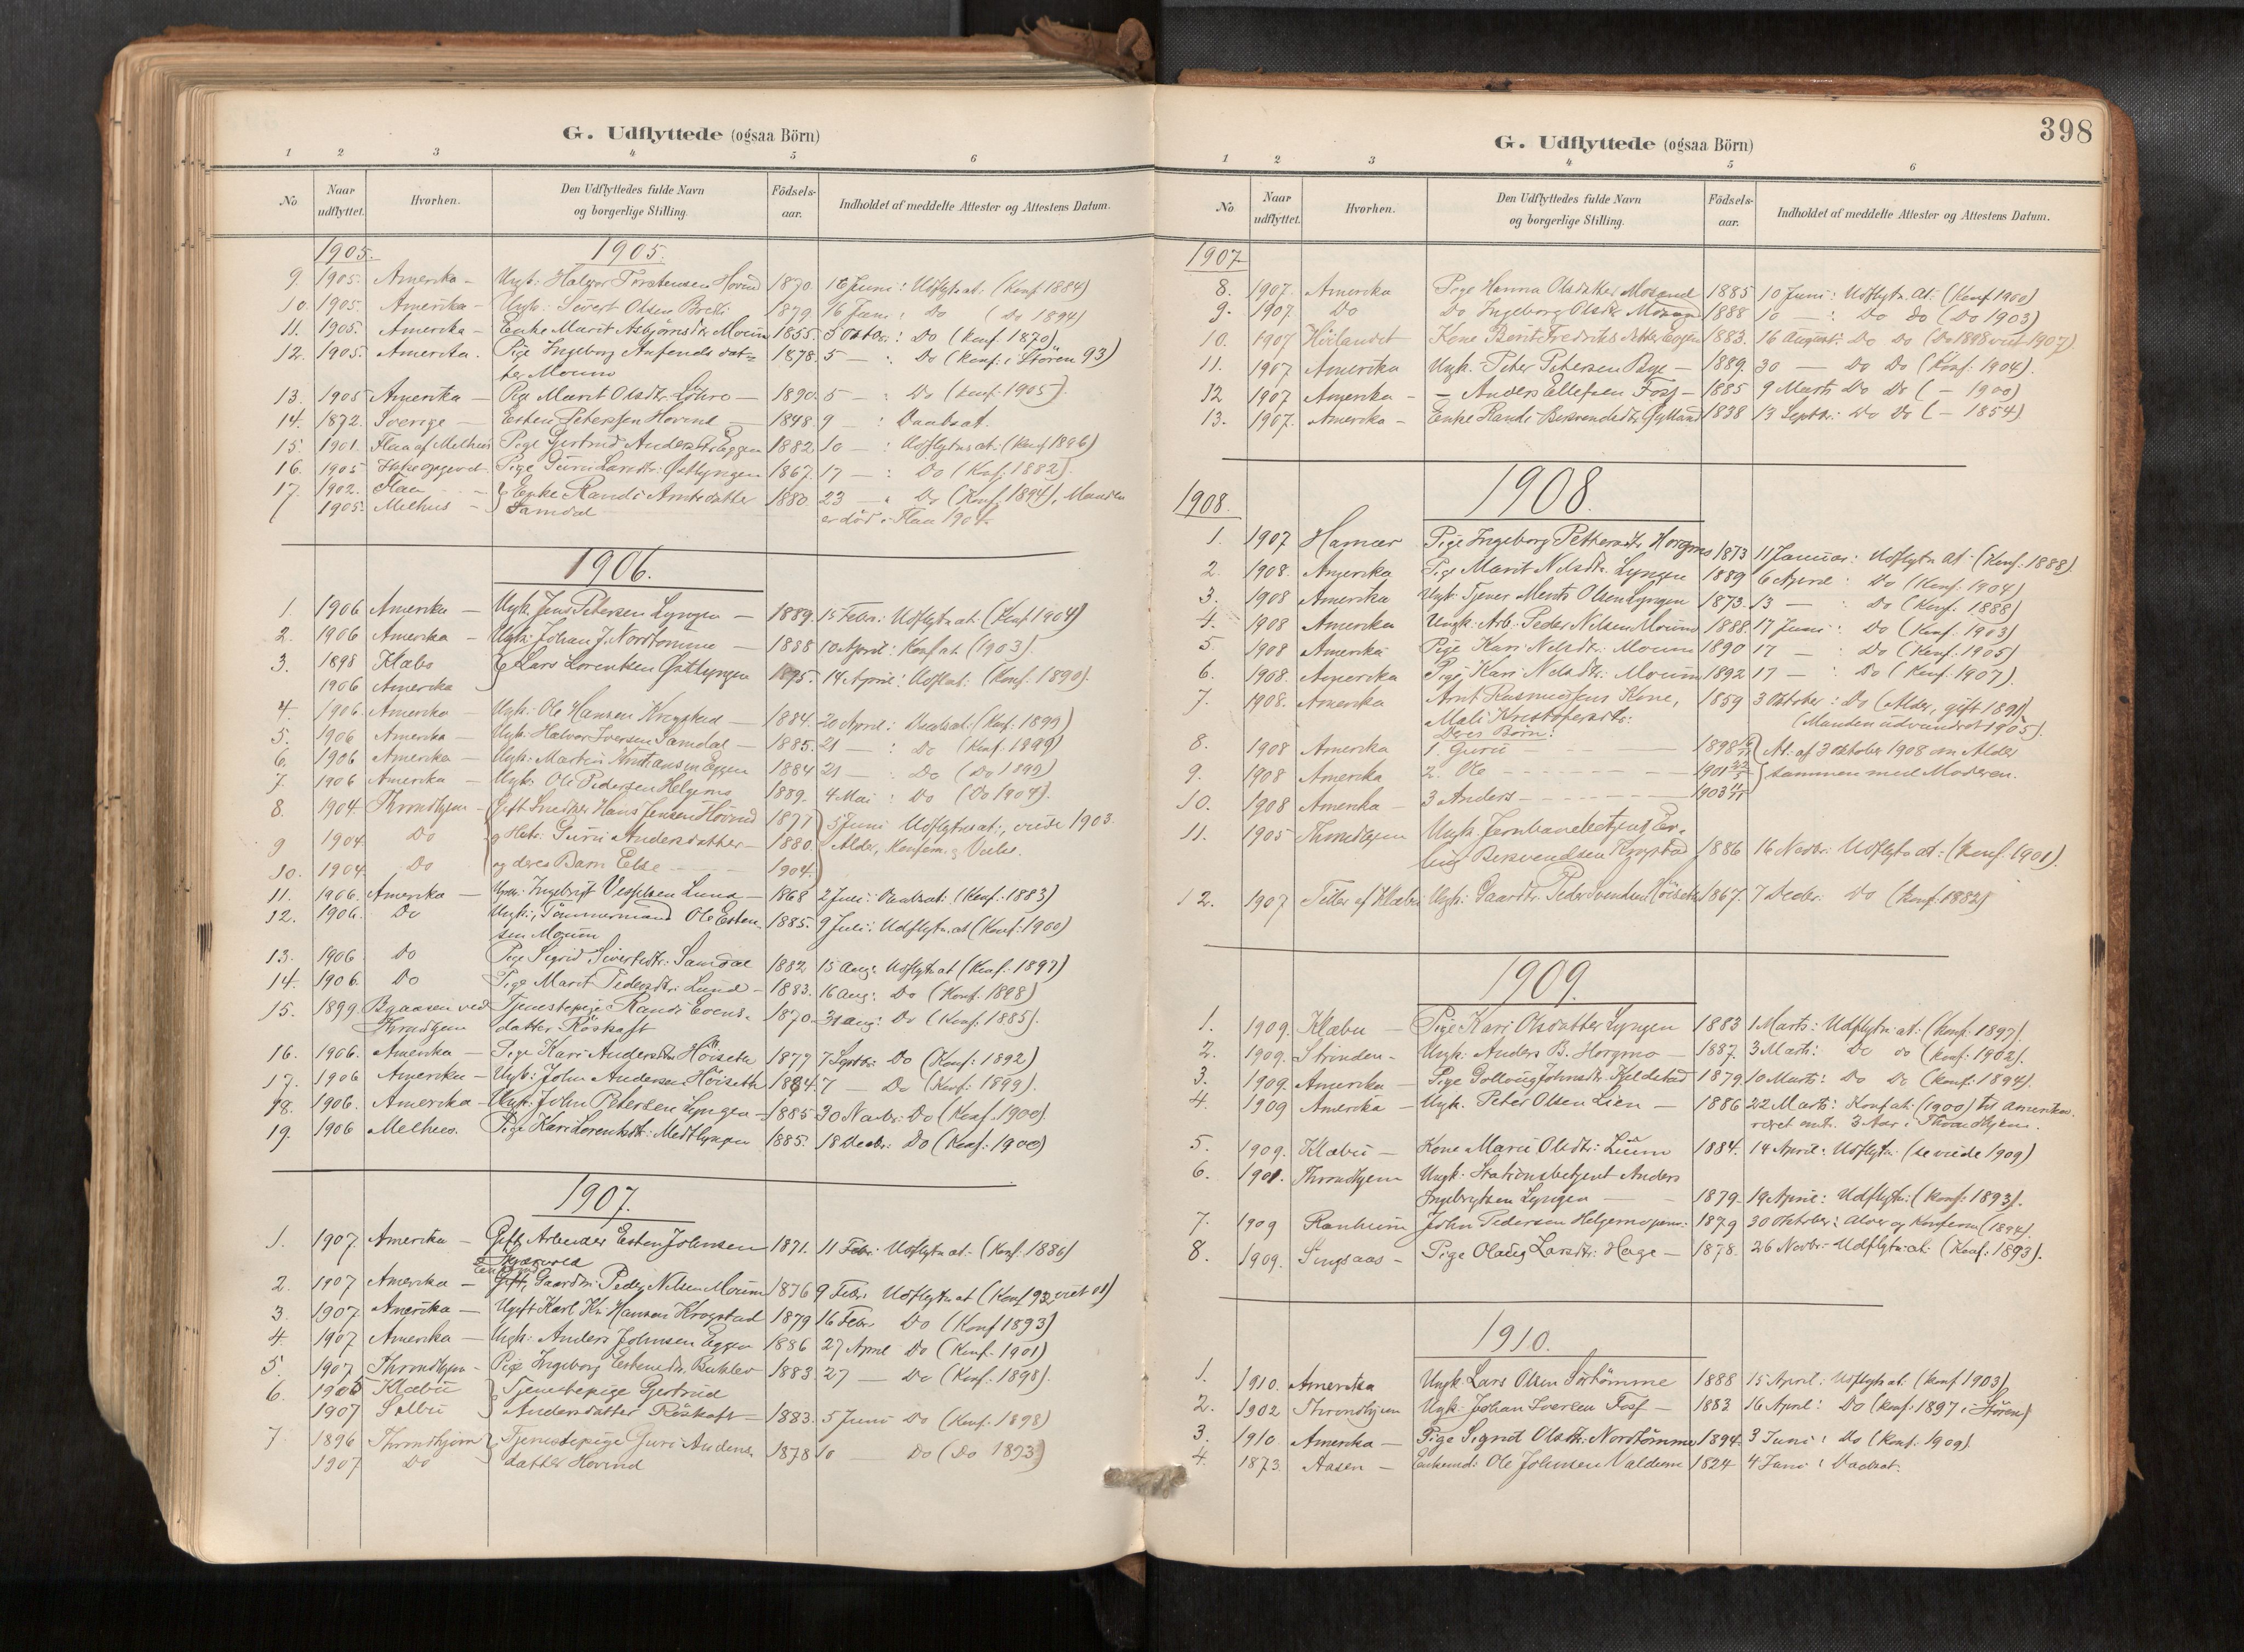 G. Udflyttede (ogsaa Börn)
1 2 3 4 5 6
No Naar udflyttet. Hvorhen. Den Udflyttedes fulde Navn og borgerlige Stilling. Födsels-aar. Indholdet af meddelte Attester og Attestens Datum.
1905. 1905.
9. 1905. Amerika - Ungk: Halvor Torstensen Hovind 1870. 16 Juni: Udflytn.at. (Konf. 1884)
10. 1905. Amerika - Ungk: Sivert Olsen 1879 16 Juni: Do (Do 1894)
11. 1905. Amerika - Enke Marit Asbjörnsdtr. Moum 1855. 5 Oktbr.: Do (Konf 1870)
12. 1905. Amerika. Pige Ingeborg dat- 1878. 5 - : Do (Konf. i Stören 93)
ter Moum
13. 1905 Amerika - Pige Marit Olsdtr. - 1890. 5 - : Do (Konf. 1905).
14. 1872. Sverige - Esten Peterssen Hovind 1848. 9 - : Daabsat.
15. 1901. Flaa af Melhus Pige Gjertrud Andersdtr. Eggen 1882 10 - : Udflytn.at. (Konf 1896)
16. 1905 Ikke opgivet. Pige Guru Larsdtr. Østlyngen 1867. 17 - : Do (Konf. 1882).
17. 1902. Flaa - Enke Randi Arntsdatter 1880 23 - " Do (Konf. 1894), Manden
1905. Melhus - Samdal er död i Flaa 1904.
1906.
1. 1906 Amerika - Ungk. Jens Petersen Lyngen - 1889. 15 Febr.: Udflytn.at. (Konf 1904)
2. 1906 Amerika - Ungk: Johan J. Nordtömme - 1888 10 April: Konf.at. (1903).
3. 1898 Klæbo E Lars Lorentsen Østlyngen 1875. 14 April: Udfl.at: (Konf. 1890).
1906 Amerika
4. 1906. Amerika - Ungk: Ole Hansen Krogstad - 1884. 20 April: (Konf. 1899)
5. 1906 Amerika - Ungk: Halvor Iversen Samdal - 1885. 21 - : Do (Konf. 1899)
6. 1906 Amerika - Ungk: Martin Kristiansen Eggen 1884 21 - : Do (Do 1899)
7. 1906 Amerika - Ungk. Ole Pedersen Helgemo 1889. 4 Mai : Do (Do 1904).
8. 1904. Throndhjem - Gift Snedker Hans Jensen Hovind 1877 5 Juni Udflytn.at:, viede 1903.
9 1904. Do og Hstr. Guru Andersdatter - 1880. Alder, Konfirm. og Vielse.
10. 1904. Do og deres Barn Else - - 1904.
11. 1906. Amerika - Ungk: Ingebrigt Lund - 1868 2 Juli: (Konf. 1883)
12. 1906. Do Ungk:, Tömmermand Ole Esten- 1885. 9 Juli: Udflytn.at (Konf: 1900)
sen Moum
13. 1906 Do Pige Sigrid Sivertsdtr: Samdal 1882 15 Aug: Udflytn.at (Konf: 1897)
14. 1906. Do Pige Marit Pedersdtr: Lund - 1883. 16 Aug: Do (Konf. 1898)
15. 1899. ved Tjenestepige Randi Evens- 1870. 31 Aug: Do (Konf. 1885).
Throndhjem datter Röskaft
16. 1906. Amerika - Pige Kari Andersdtr. Höiseth 1877 7 Septbr: Do (Konf: 1892)
17. 1906 Amerika - Ungk: John Andersen Höiseth 1884. 7 - Do (Konf: 1899).
18. 1906. Amerika - Ungk. John Petersen Lyngen - 1885 30 Novbr: Do (Konf. 1900)
19. 1906 Melhus. Pige Kari Lorentsdtr: Midtlyngen 1885. 18 Decbr: Do (Konf: 1900)
1907.
1. 1907. Amerika - Gift Arbeider Esten Johnsen 1871. 11 Febr: Udflytn.at: (Konf. 1886)
2. 1907 Amerika - Gift, Gaardbr. Peder Nilsen Moum 1876 9 Febr. Udflytn.at (Konf 92, viet 01)
3. 1907. Amerika - Ugift Karl Kr. Hansen Krogstad 1879 16 Febr. Do (Konf 1893)
4. 1907 Amerika - Ungk: Anders Johnsen Eggen 1886 27 April Do (Konf. 1901)
5. 1907. Throndhjem - Pige Ingeborg Estensdtr. 1883. 27 - Do (Konf. 1898).
6. 1905 Klæbu Tjenestepige Gjertrud
1907 Selbu Andersdatter Röskaft - 1883. 5 Juni Do (Konf. 1898)
7 1896 Throndhjem Tjenestepige Guri Anders- 1878 10 - Do (Do 1893)
1907 Do datter Hovind
398
G. Udflyttede (ogsaa Börn)
1 2 3 4 5 6
No Naar udflyttet. Hvorhen. Den Udflyttedes fulde Navn og borgerlige Stilling. Födsels-aar. Indholdet af meddelte Attester og Attestens Datum.
1907.
8. 1907. Amerika Pige Hanna Olsdatter Mosand 1885 10 Juni: Udflytn. At. (Konf 1900)
9. 1907. Do Do Ingeborg Olsdtr. Mosand 1888 10 - : Do Do (Do 1903)
10. 1907 Kone Berit Fredriksdatter Eggen 1883. 16 August: Do Do (Do 1898 viet 1907)
11. 1907 Amerika Ungk. Peter Petersen Bye - 1889. 30 - Do Do (Konf. 1904).
12 1907 Amerika - - Anders Ellefsen Foss - 1885 9 Marts Do Do ( - 1900)
13. 1907. Amerika - Enke Randi Gylland 1838 13 Septbr: Do Do ( - 1854)
1908.
1908.
1. 1907 Hamar Pige Ingeborg Pettersdtr. Horgmo 1873 11 Januar: Udflytn.at: (Konf. 1888)
2. 1908. Amerika Pige Marit Nilsdtr. Lyngen 1889 6 April : Do (Konf. 1904)
3. 1908 Amerika Ungk. Tjener Ments Olsen Lyngen 1873. 13 - : Do (Konf. 1888)
4. 1908 Amerika Ungk: Arb: Peder Nilsen Moum 1888. 17 Juni : Do (Konf. 1903)
5. 1908 Amerika Pige Kari Nilsdtr: Moum 1890 17 - : Do (Konf. 1905)
6. 1908. Amerika Pige Kari Nilsdtr: Moum 1892 17 - : Do (Konf. 1907).
7. 1908. Amerika Arnt Rasmussens Kone, 1859 3 Oktober: Do (Alder, gift 1891)
Mali Kristofersdtr: (Manden udvandret 1905).
Deres Börn:
8. 1908 Amerika 1. Guru - - 1898 At. af 3 Oktober 1908 om Alder
9. 1908 Amerika 2. Ole - - 1901 sammen med Moderen.
10. 1908 Amerika - 3 Anders - - 1903
11. 1905 Throndhjem Ungk. Jernbanebetjent Er-
ling 1886 16 Novbr: Udflytn.at: (Konf. 1901).
12. 1907 Tiller af Klæbu Ungk: Gaardbr. Peder Svendsen Höiseth 1867. 7 Decbr: Do (Konf: 1882)
1909.
1. 1909. Klæbu - Pige Kari Olsdatter Lyngen 1883 1 Marts: Udflytn.at: (Konf: 1897).
2. 1909. Strinden - Ungk: Anders B. Horgmo - 1887. 3 Marts: Do Do (Konf: 1902).
3. 1909. Amerika - Pige Johnsdtr. Kjeldstad 1879. 10 Marts: Do Do (Konf: 1894).
4. 1909 Amerika - Ungk. Peter Olsen Lien - 1886 22 Marts: Konf.at: (1900) til Amerika.
været omt. 3 Aar i Throndhjem.
5. 1909. Klæbu - Kone Marie Olsdtr: Luum 1884. 14 April: Udflytn. (se viede 1909)
6. 1901. Throndhjem Ungk: Stationsbetjent Anders
Ingebrigtsen Lyngen - - 1879. 19 April: Udflytn: (Konf: 1893).
7. 1909 Ranheim John Pedersen Helgemo 1879 30 Oktober: Alder og Konfirm (1894).
8. 1909. Singsaas - Pige Olaug Larsdtr: Hage - 1878. 26 Novbr: Udflytn.at: (Konf: 1893).
1910.
1. 1910. Amerika Ungk Lars Olsen Sörtömme 1888 15 April: Udflytn.at: (Konf 1903)
2. 1902 Throndhjem Ungk: Johan Iversen Foss - 1883 16 April: Do (Konf: 1897 i Stören)
3. 1910. Amerika - Pige Sigrid Olsdtr: Nordtömme 1894. 3 Juni: Do (Konf. 1909).
4. 1873. Aasen - Enkemd: Ole Johnsen Valdum 1824 4 Juni: Daabsat.